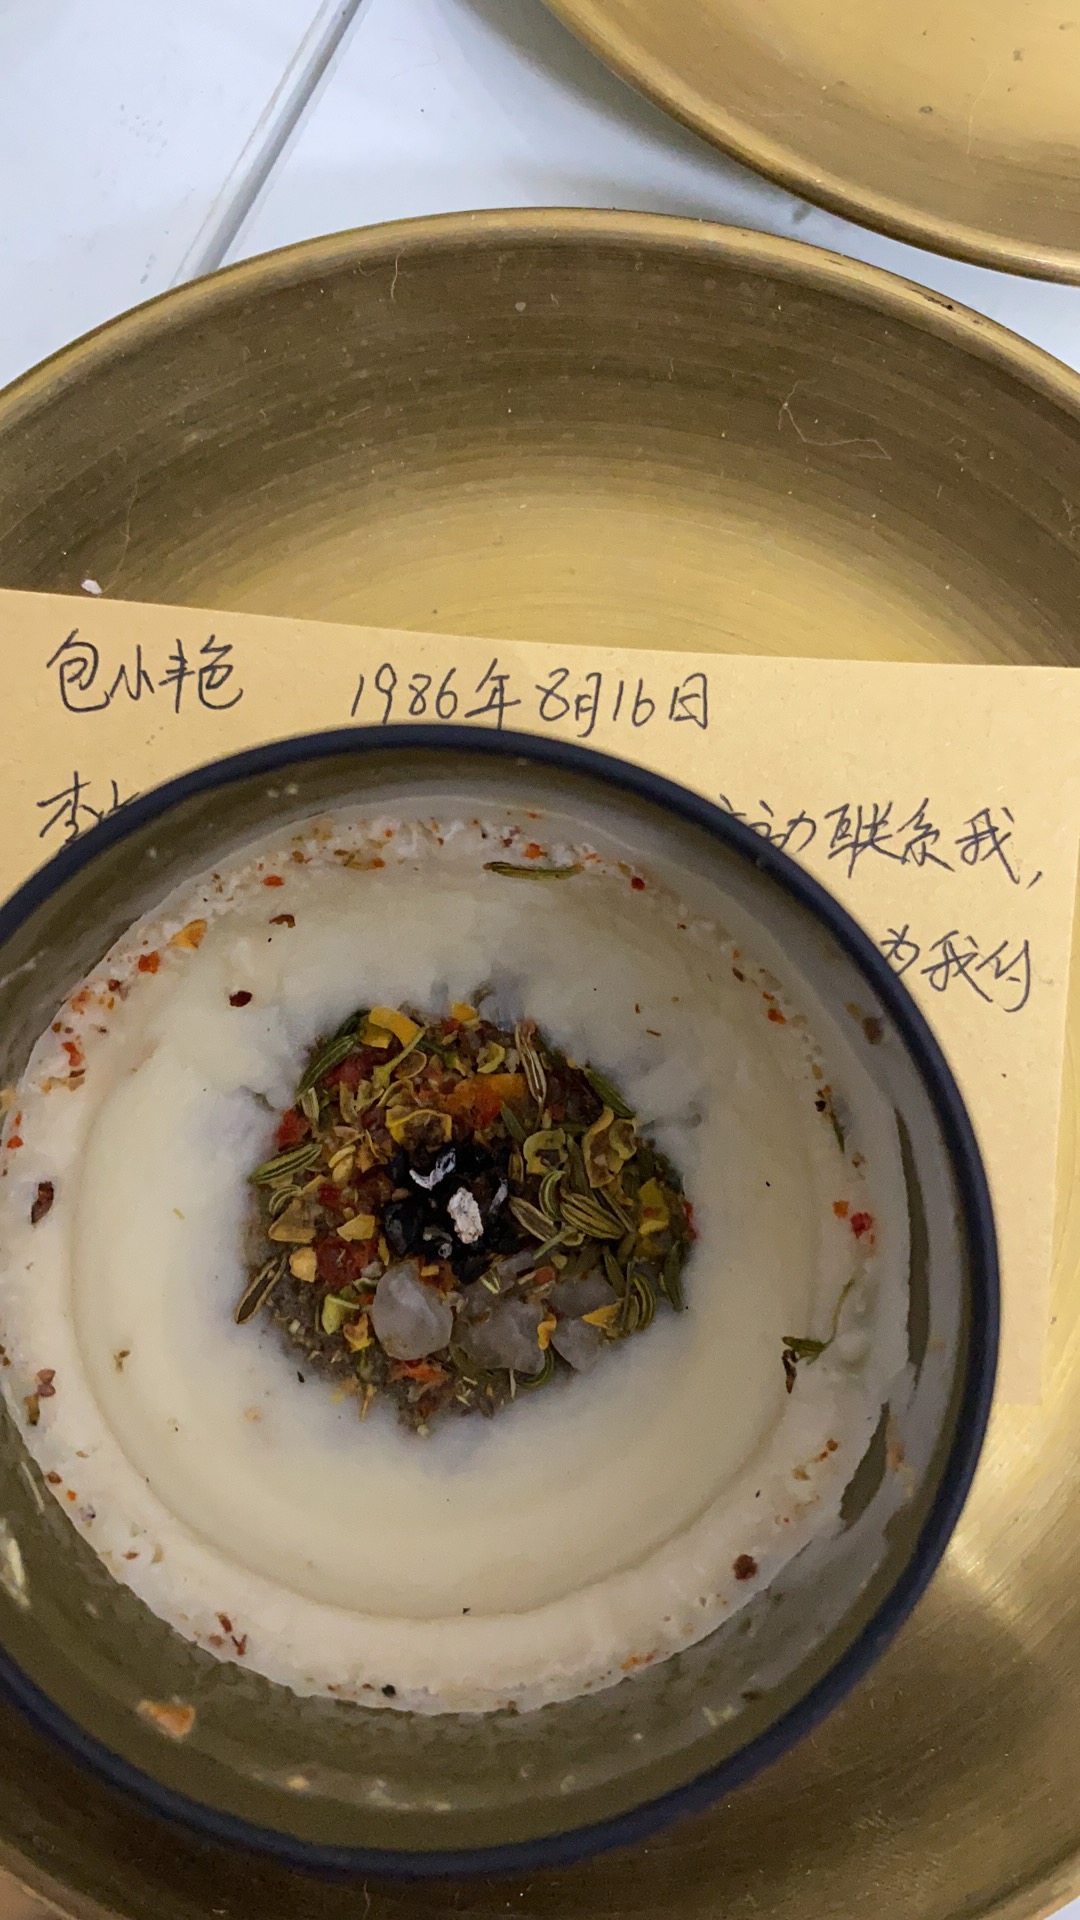 包小艳 1986年8月16日
李 主动联系我,
为我付